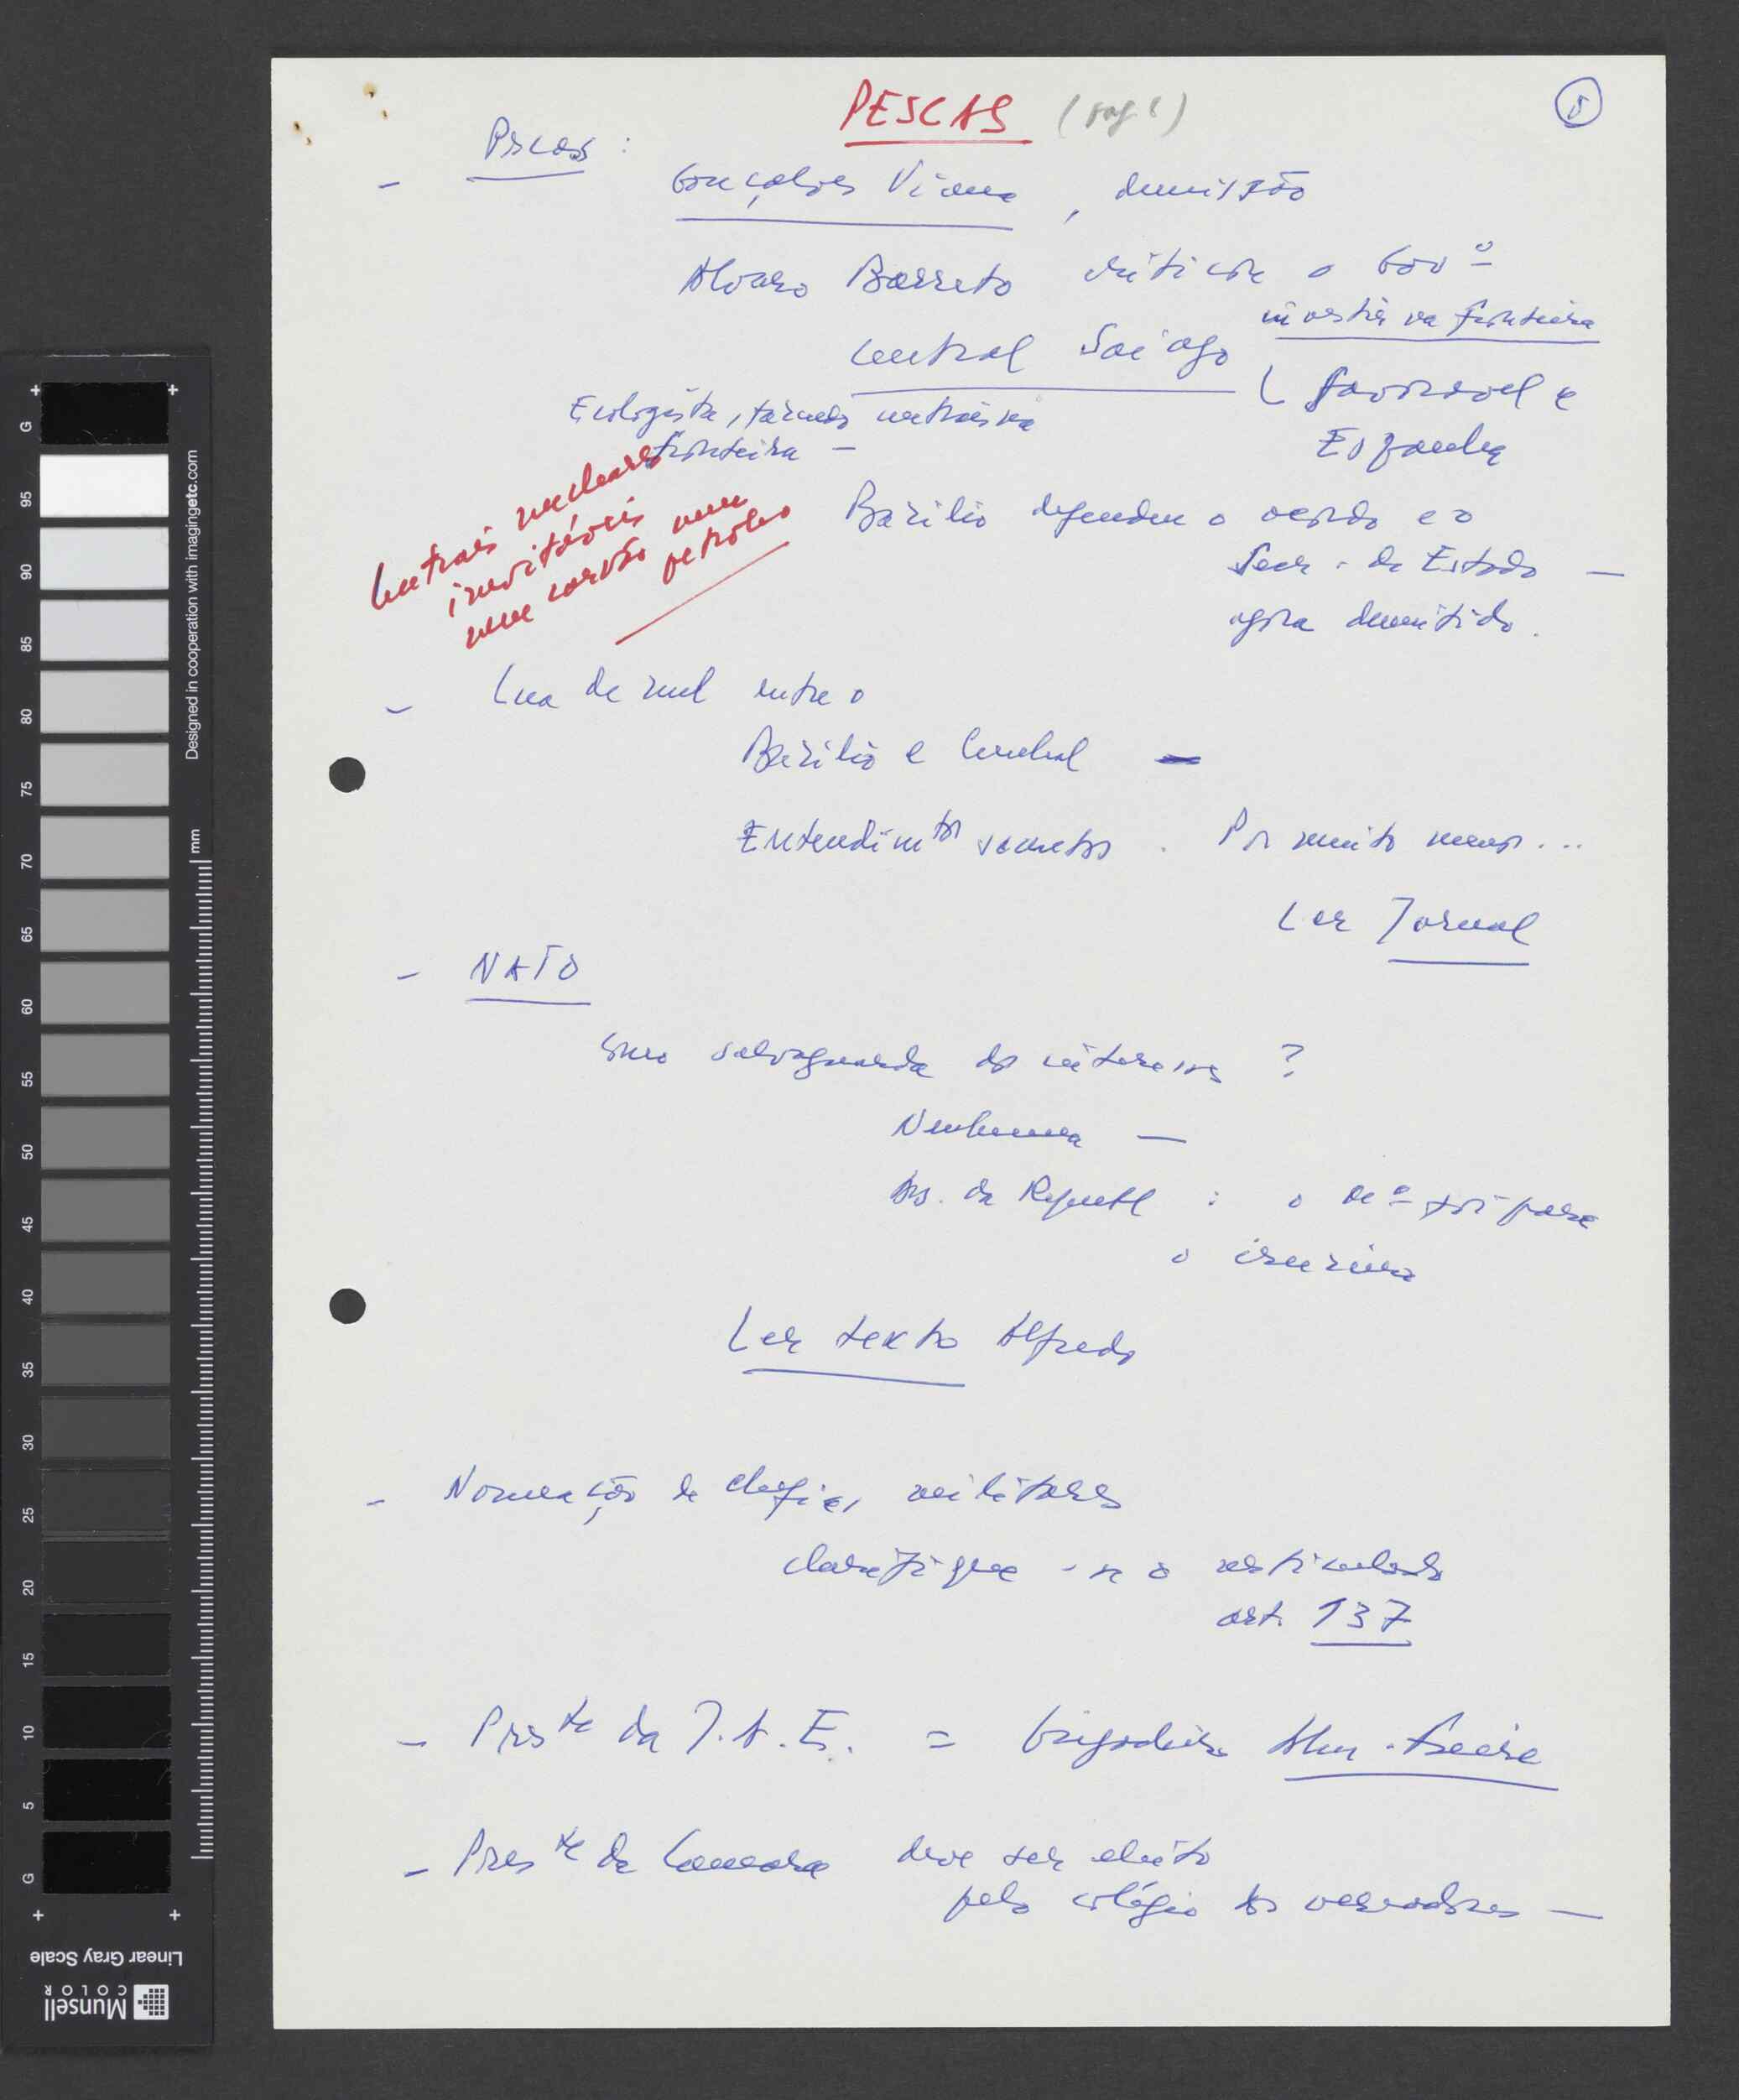 PESCAS (pag
5
- Pescas :
Gonçalves Viana, demissão
Alvaro Barreto critica o Govº
investir na fronteira
Central Saiago
( favorável e
Espanha
Ecologista, temos centrais na
fronteira -
Centrais nucleares
inevitáveis
nem carvão nem
petróleo
Basilio defendeu o acordo e o
Secr. de Estado -
agora demitido.
- Lua de mel entre o
Basilio e Cardeal -
Entendimtos secretos. Por muito menos...
Ler Jornal
- NATO
Como salvaguarda os interesses ?
Nenhuma -
Ass. da Republ : o para
o
Ler texto Alfredo
- Nomeação de chefias militares
clarifique-se o articulado
art. 137
- Preste da J.A.E. = brigadeiro Alm. Freire
- Preste da Camara deve ser eleito
pelo colégio dos vereadores -
G 95 90 85 80 75 70 65 60 55 50 45 40 35 30 25 20 15 10 5 G
Designed in cooperation with imagingetc.com
mm
Linear Gray Scale
Munsell
COLOR